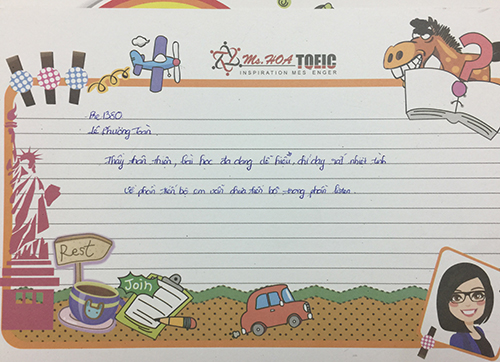 Ms. HOA TOEIC
INSPIRATION MESSENGER
Pre 1380
Lê Phương Toàn.
Thầy thân thiện, bài học đa dạng dễ hiểu, chỉ dạy rất nhiệt tình
Về phần tiến bộ em vẫn chưa tiến bộ trong phần listen.
Rest
Join